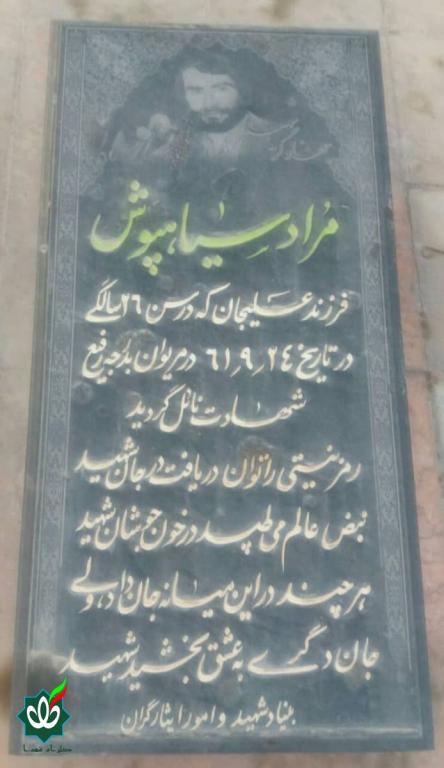 مراد سیاهپوش
فرزند علیجان که در سن ۲۶ سالگے
در تاریخ ۲۴_۹_۶۱ در مریوان بدرجه رفیع
شهادت نائل گردید
رمز نیستی را توان دریافت در جان شهید
نبض عالم می طپد در خون جوشان شهید
هر چند در این میانه جان داد ولے
جان دگرے به عشق بخشید شهید
بنیاد شهید و امور ایثارگران